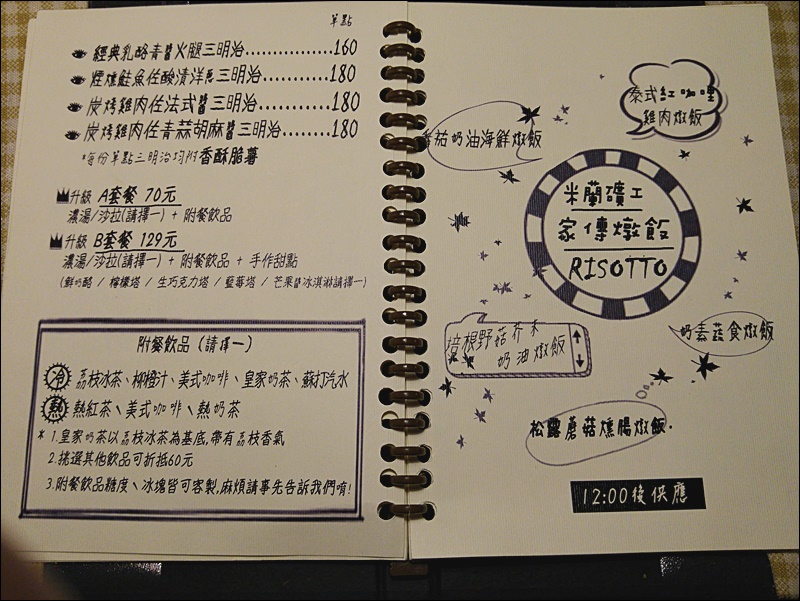 單點
經典乳酪青醬火腿三明治................160
煙燻鮭魚佐酸漬洋蔥三明治............180
炭烤雞肉佐法式醬三明治..............180
炭烤雞肉佐青蒜胡麻醬三明治.........180
*每份單點三明治均附香酥脆薯
升級 A套餐 70元
濃湯/沙拉(請擇一) + 附餐飲品
升級 B套餐 129元
濃湯/沙拉(請擇一) + 附餐飲品 + 手作甜點
(鮮奶酪 / 檸檬塔 / 生巧克力塔 / 藍莓塔 / 芒果醬冰淇淋請擇一)
附餐飲品 (請擇一)
冷 荔枝冰茶、柳橙汁、美式咖啡、皇家奶茶、蘇打汽水
熱 熱紅茶、美式咖啡、熱奶茶
* 1.皇家奶茶以荔枝冰茶為基底,帶有荔枝香氣
2.挑選其他飲品可折抵60元
3.附餐飲品糖度、冰塊皆可客製,麻煩請事先告訴我們唷!
泰式紅咖哩
雞肉燉飯
番茄奶油海鮮燉飯
米蘭礦工
家傳燉飯
RISOTTO
奶素蔬食燉飯
培根野菇芥末
奶油燉飯
松露蘑菇燻腸燉飯.
12:00後供應